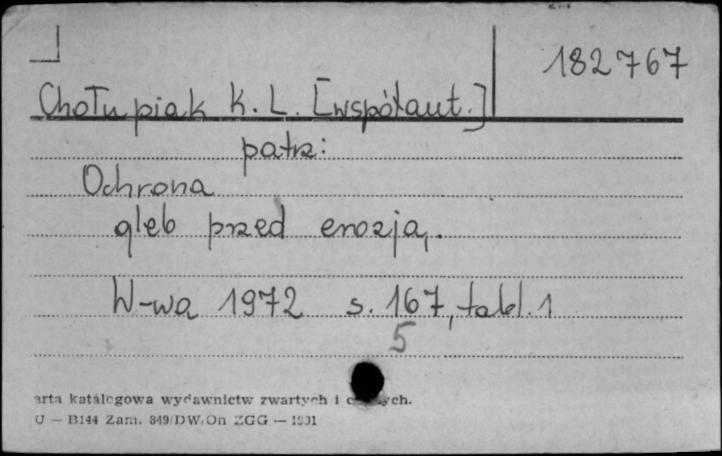 182767
Chołupiak K. L. [współaut.]
patrz:
Ochrona
gleb przed erozją.
W-wa 1972 s. 167, tabl. 1
5
arta katalogowa wydawnictw zwartych i ych.
U — B144 Zam. 849/DW/On ZGG —